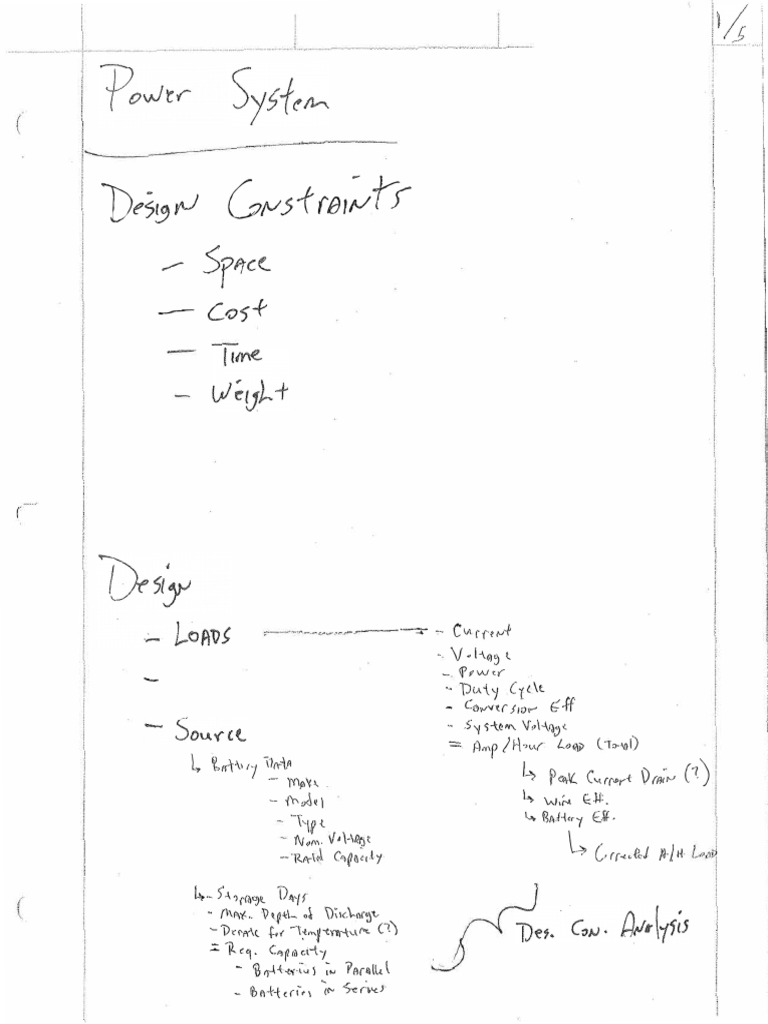 1/5
Power System
Design Constraints
- Space
- Cost
- Time
- Weight
Design
- Loads → - Current
- Voltage
- Power
- Duty Cycle
- Conversion Eff
- System Voltage
= Amp/Hour Load (Total)
↳ Peak Current Drain (?)
↳ Wire Eff.
↳ Battery Eff.
↳ Corrected A/H. Load
-
- Source
↳ Battery Data
- Make
- Model
- Type
- Nom. Voltage
- Rated Capacity
↳ - Storage Days
- Max. Depth of Discharge
- Derate for Temperature (?)
= Req. Capacity
- Batteries in Parallel
- Batteries in Series
Des. Con. Analysis